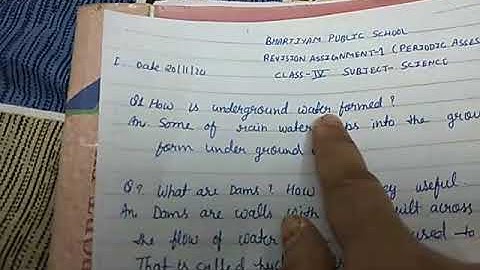 BHARTIYAM PUBLIC SCHOOL
REVISION ASSIGNMENT-1 (PERIODIC ASSES
I. Date 20/11/20
CLASS-IV SUBJECT- SCIENCE
Q1 How is underground water formed?
An. Some of rain water into the grou
form under ground
Q? What are Dams? How useful.
An Dams are walls with across
the flow of water used to
That is called